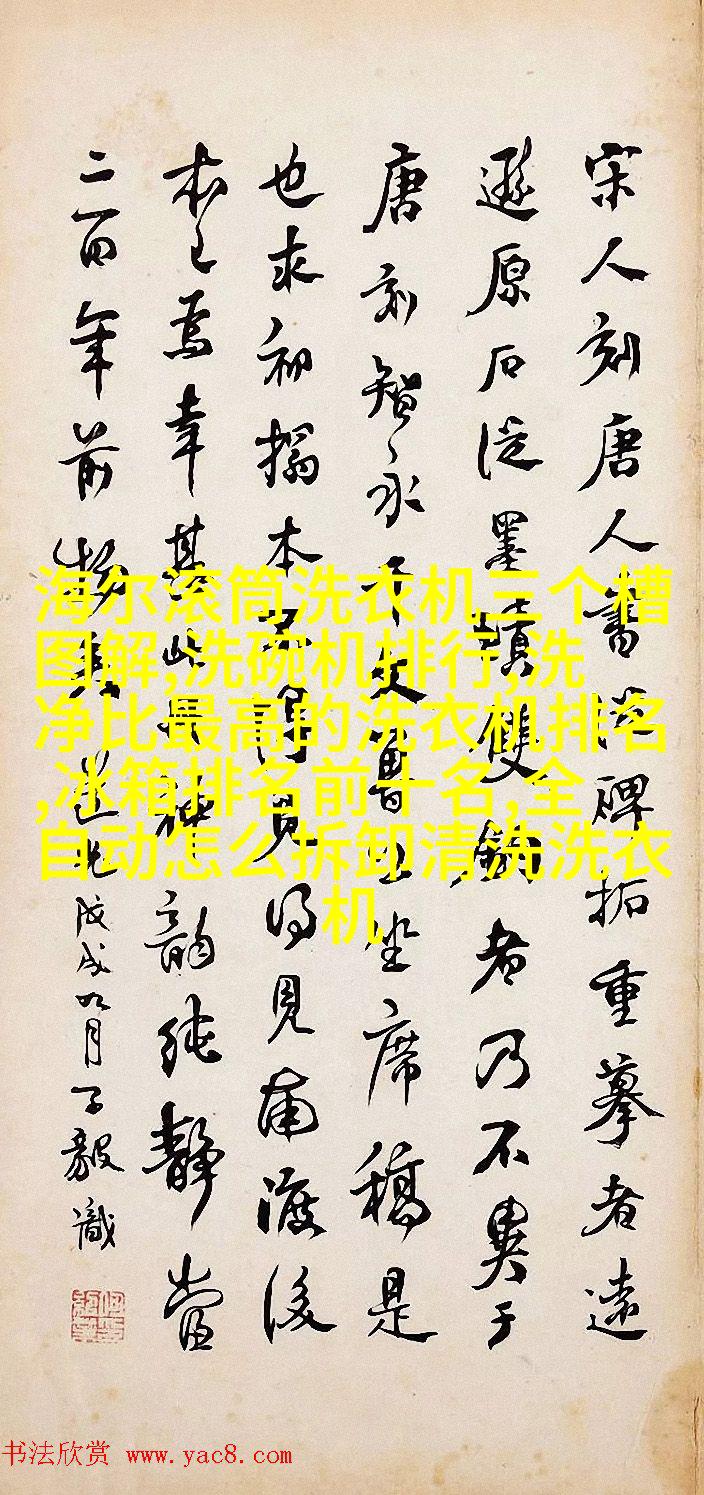 宋人刻唐人書從碑拓重摹者遠
遜原石從墨蹟雙鉤者乃不異于
唐刻智永千文魯公坐席稿是
也求初搨本不得見得見南渡後
本焉幸甚此神韻純靜當
二百年前物道光戊戌九月子毅識
海尔滚筒洗衣机三个槽
图解,洗碗机排行,洗
净比最高的洗衣机排名
,冰箱排名前十名,全
自动怎么拆卸清洗洗衣
机
书法欣赏 www.yac8.com